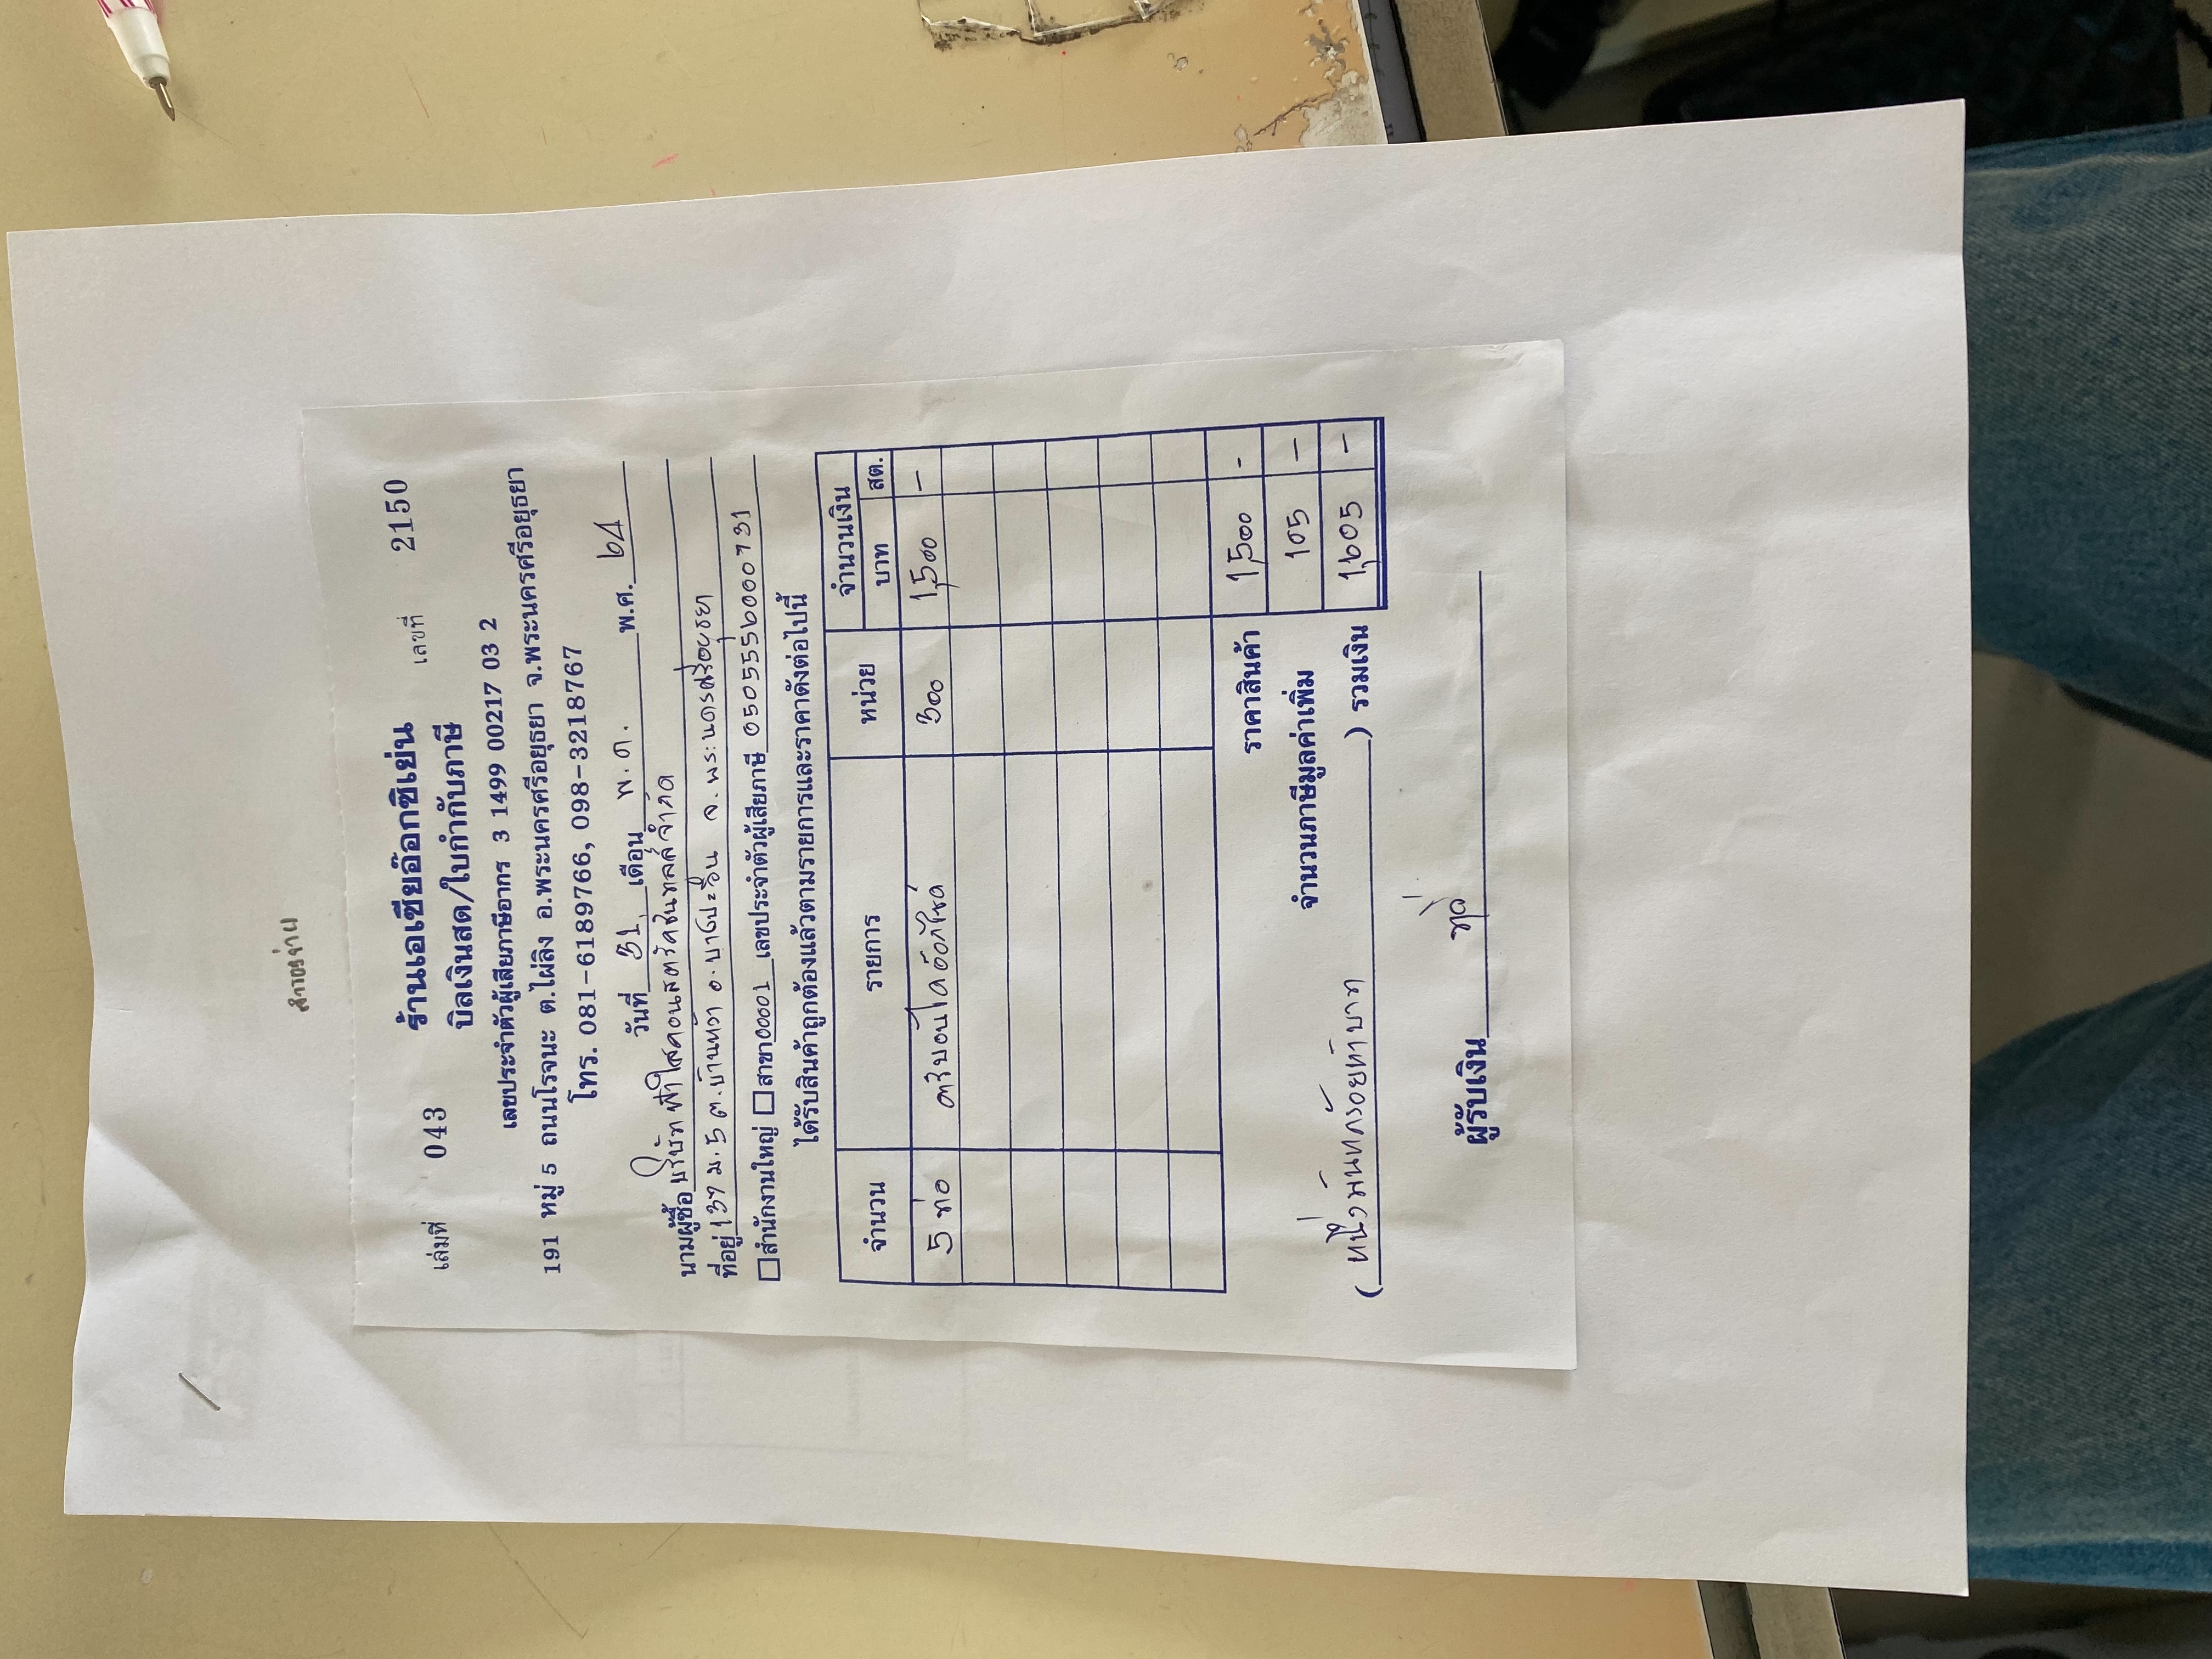 สำรองจ่าย
ร้านเอเชียอ๊อกซิเย่น
เล่มที่ 043 เลขที่ 2150
บิลเงินสด/ใบกำกับภาษี
เลขประจำตัวผู้เสียภาษีอากร 3 1499 00217 03 2
191 หมู่ 5 ถนนโรจนะ ต.ไผ่ลิง อ.พระนครศรีอยุธยา จ.พระนครศรีอยุธยา
โทร. 081-6189766, 098-3218767
วันที่ 31 เดือน พ.ค. พ.ศ. 64
นามผู้ซื้อ บริษัท ฟ้าใสคอนสตรัคชั่นทูลส์ จำกัด
ที่อยู่ 137 ม.5 ต.บ้านหว้า อ.บางปะอิน จ.พระนครศรีอยุธยา
สำนักงานใหญ่ สาขา 00001 เลขประจำตัวผู้เสียภาษี 0505556000731
ได้รับสินค้าถูกต้องแล้วตามรายการและราคาดังต่อไปนี้
จำนวน รายการ หน่วย จำนวนเงิน
บาท สต.
5 ท่อ คาร์บอนไดอ๊อกไซด์ 300 1,500 -
ราคาสินค้า 1,500 -
จำนวนภาษีมูลค่าเพิ่ม 105 -
(หนึ่งพันหกร้อยห้าบาท) รวมเงิน 1,605 -
ผู้รับเงิน